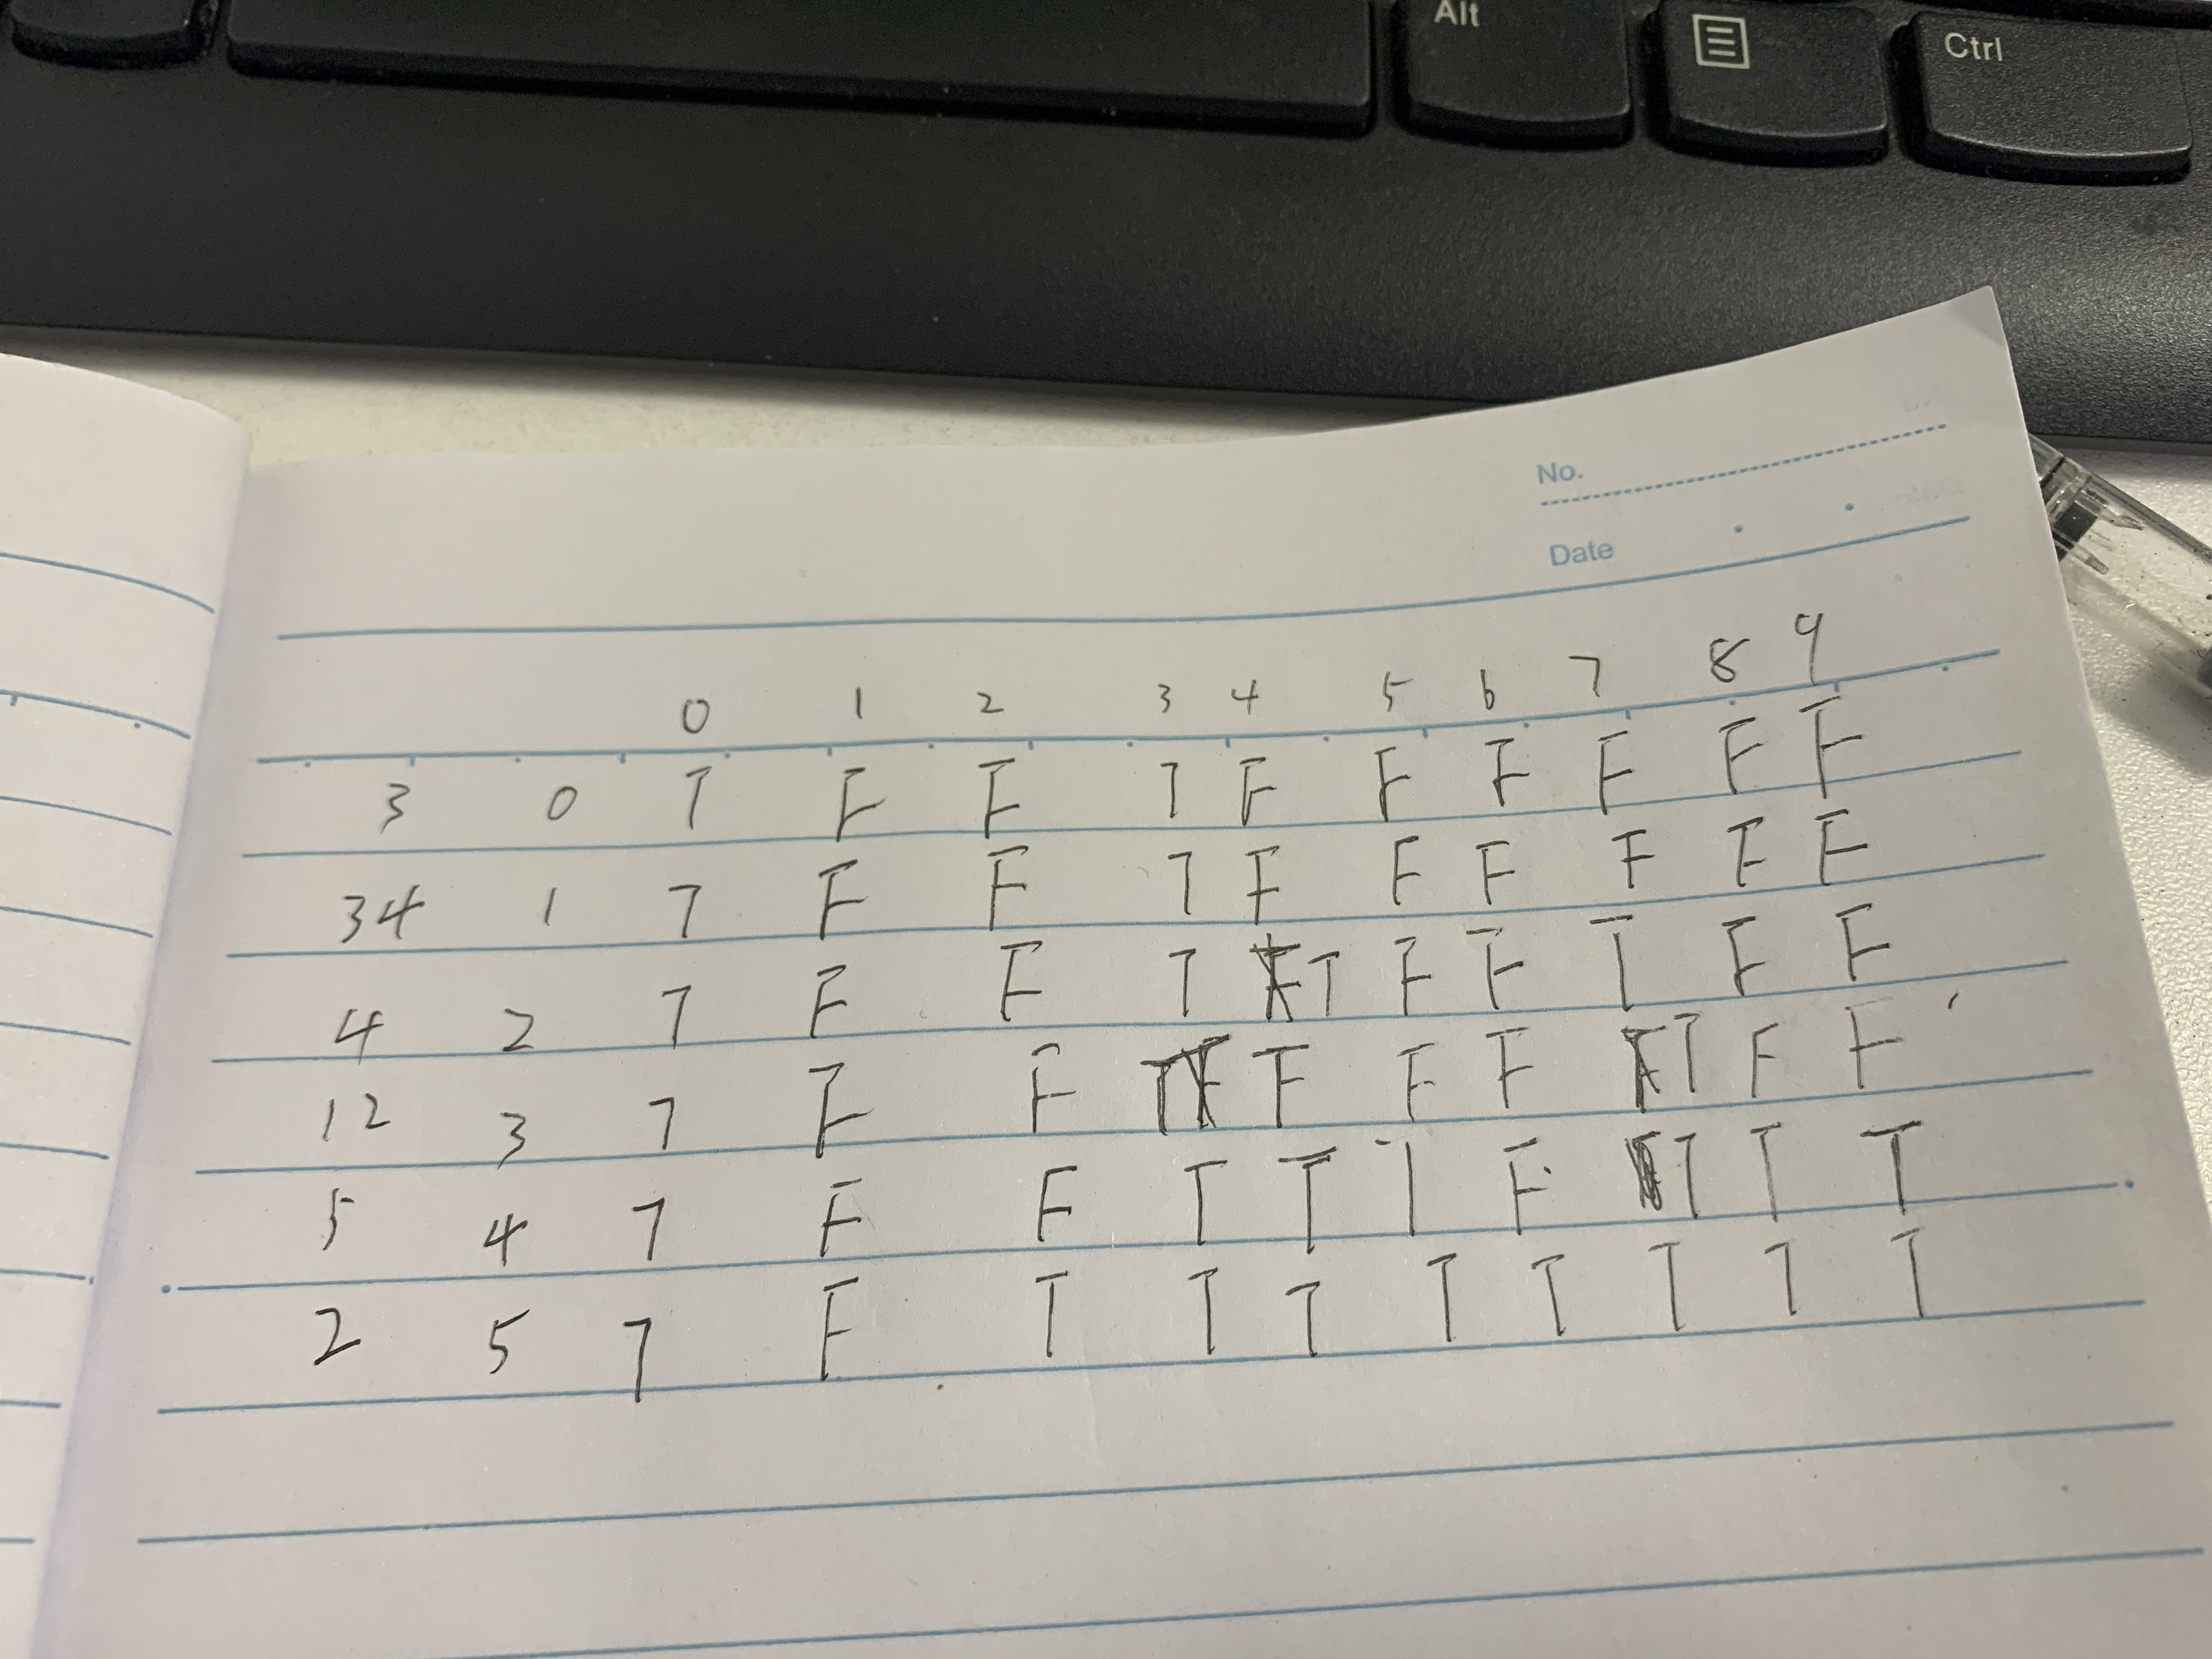 No.
Date
0 1 2 3 4 5 6 7 8 9
3 0 T F F T F F F F F F
34 1 T F F T F F F F F F
4 2 T F F T T F F T F F
12 3 T F F F F F T F F
5 4 T F F T T T F T T T
2 5 T F T T T T T T T T
Alt
Ctrl